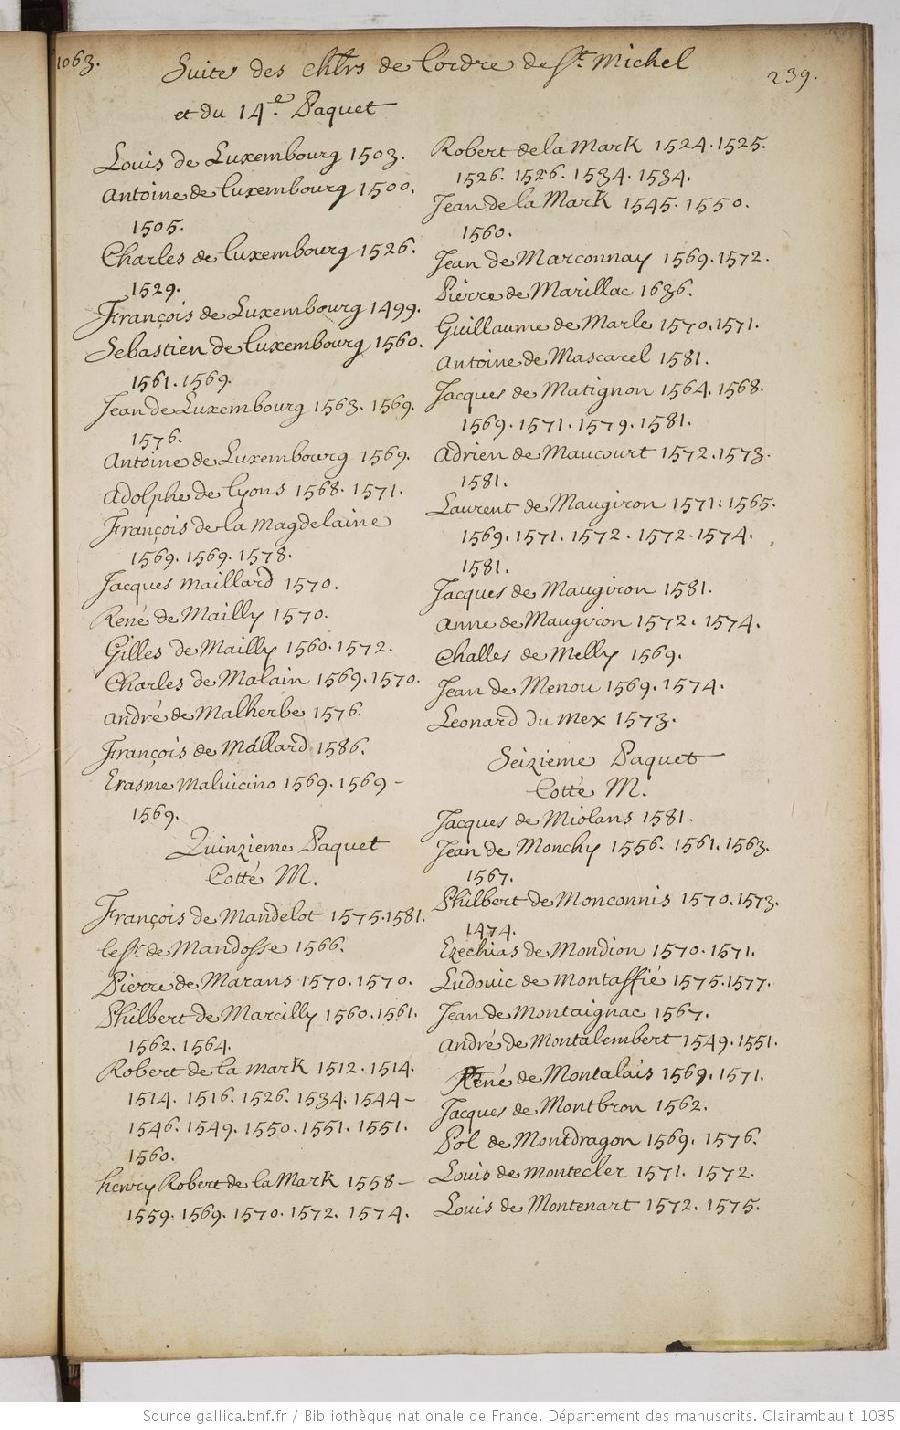 1063.
Suite des chlrs de lordre de St. Michel
239.
et du 14e. Paquet
Louis de Luxembourg 1503.
Antoine de luxembourg 1500.
1505.
Charles de luxembourg 1526.
1529.
François de Luxembourg 1499.
Sebastien de luxembourg 1560.
1561. 1569.
Jean de Luxembourg 1563. 1569.
1576.
Antoine de Luxembourg 1569.
Adolphe de lyons 1568. 1571.
François de la magdelaine
1569. 1569. 1578.
Jacques maillard 1570.
René de Mailly 1570.
Gilles de Mailly 1560. 1572.
Charles de Malain 1569. 1570.
André de Malherbe 1576.
François de Mallard 1586.
Erasme malvicino 1569. 1569 -
1569.
Quinzieme Paquet
Cotté M.
François de Mandelot 1575. 1581.
le Sr. de Mandosse 1566.
Pierre de Marans 1570. 1570.
Philbert de Marcilly 1560. 1561.
1562. 1564.
Robert de la mark 1512. 1514.
1514. 1516. 1526. 1534. 1544 -
1546. 1549. 1550. 1551. 1551.
1560.
henry Robert de la Mark 1558 -
1559. 1569. 1570. 1572. 1574.
Robert de la Mark 1524. 1525.
1526. 1526. 1534. 1534.
Jean de la Mark 1545. 1550.
1560.
Jean de Marconnay 1569. 1572.
Pierre de Marillac 1636.
Guillaume de Marle 1570. 1571.
Antoine de Mascarel 1581.
Jacques de Matignon 1564. 1568.
1569. 1571. 1579. 1581.
Adrien de Maucourt 1572. 1573.
1581.
Laurent de Maugiron 1571. 1565.
1569. 1571. 1572. 1572. 1574.
1581.
Jacques de Maugiron 1581.
Anne de Maugiron 1572. 1574.
Challes de Melly 1569.
Jean de Menou 1569. 1574.
Leonard du mex 1573.
Seizieme Paquet
Cotté M.
Jacques de Miolans 1581.
Jean de Monchy 1556. 1561. 1563.
1567.
Philbert de Monconnis 1570. 1573.
1474.
Ezechias de Mondion 1570. 1571.
Ludovic de Montaffié 1575. 1577.
Jean de Montaignac 1567.
André de Montalembert 1549. 1551.
René de Montalais 1569. 1571.
Jacques de Montbron 1562.
Pol de Montdragon 1569. 1576.
Louis de montecler 1571. 1572.
Louis de Montenart 1572. 1575.
Source gallica.bnf.fr / Bibliothèque nationale de France. Département des manuscrits. Clairambault 1035